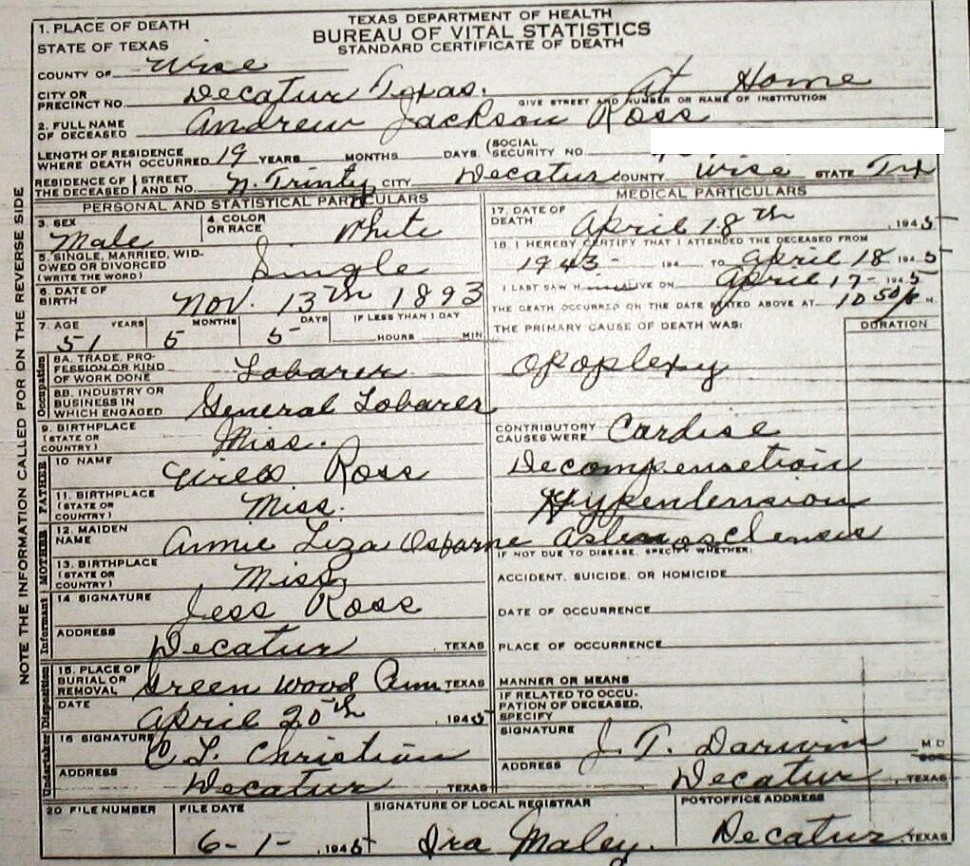 TEXAS DEPARTMENT OF HEALTH
BUREAU OF VITAL STATISTICS
STANDARD CERTIFICATE OF DEATH
NOTE THE INFORMATION CALLED FOR ON THE REVERSE SIDE
1. PLACE OF DEATH
STATE OF TEXAS
COUNTY OF Wise
CITY OR PRECINCT NO. Decatur Texas. At Home
GIVE STREET AND NUMBER OR NAME OF INSTITUTION
2. FULL NAME OF DECEASED Andrew Jackson Ross
LENGTH OF RESIDENCE WHERE DEATH OCCURRED 19 YEARS MONTHS DAYS (SOCIAL SECURITY NO.
RESIDENCE OF THE DECEASED STREET AND NO. N. Trinty CITY Decatur COUNTY Wise STATE Tex
PERSONAL AND STATISTICAL PARTICULARS
3. SEX Male
4. COLOR OR RACE White
5. SINGLE, MARRIED, WIDOWED OR DIVORCED (WRITE THE WORD) Single
6. DATE OF BIRTH Nov. 13th 1893
7. AGE YEARS MONTHS DAYS IF LESS THAN 1 DAY
51 5 5 HOURS MIN
Occupation
8A. TRADE, PROFESSION OR KIND OF WORK DONE Labarer
8B. INDUSTRY OR BUSINESS IN WHICH ENGAGED General Labarer
9. BIRTHPLACE (STATE OR COUNTRY) Miss.
FATHER
10 NAME Ross
11. BIRTHPLACE (STATE OR COUNTRY) Miss.
MOTHER
12. MAIDEN NAME Annie Liza Osborne
13. BIRTHPLACE (STATE OR COUNTRY) Miss
Informant
14 SIGNATURE Jess Ross
ADDRESS Decatur, TEXAS
Disposition
15. PLACE OF BURIAL OR REMOVAL Green Wood TEXAS
DATE April 20th, 1945
Undertaker
16 SIGNATURE C L. Christian
ADDRESS Decatur, TEXAS
MEDICAL PARTICULARS
17. DATE OF DEATH April 18th, 1945
18. I HEREBY CERTIFY THAT I ATTENDED THE DECEASED FROM
1943- 194 TO April 18 1945
I LAST SAW H ALIVE ON April 17- 1945
THE DEATH OCCURRED ON THE DATE STATED ABOVE AT 10 50 M.
THE PRIMARY CAUSE OF DEATH WAS: DURATION
Apoplexy
CONTRIBUTORY CAUSES WERE Cardiac
Decompensation
Hypertension
IF NOT DUE TO DISEASE, SPECIFY WHETHER:
ACCIDENT, SUICIDE, OR HOMICIDE
DATE OF OCCURRENCE
PLACE OF OCCURRENCE
MANNER OR MEANS
IF RELATED TO OCCUPATION OF DECEASED, SPECIFY
SIGNATURE J. T. Darwin M D
ADDRESS Decatur, TEXAS
20 FILE NUMBER
FILE DATE 6-1-, 1945
SIGNATURE OF LOCAL REGISTRAR Ira Maley.
POSTOFFICE ADDRESS Decatur, TEXAS